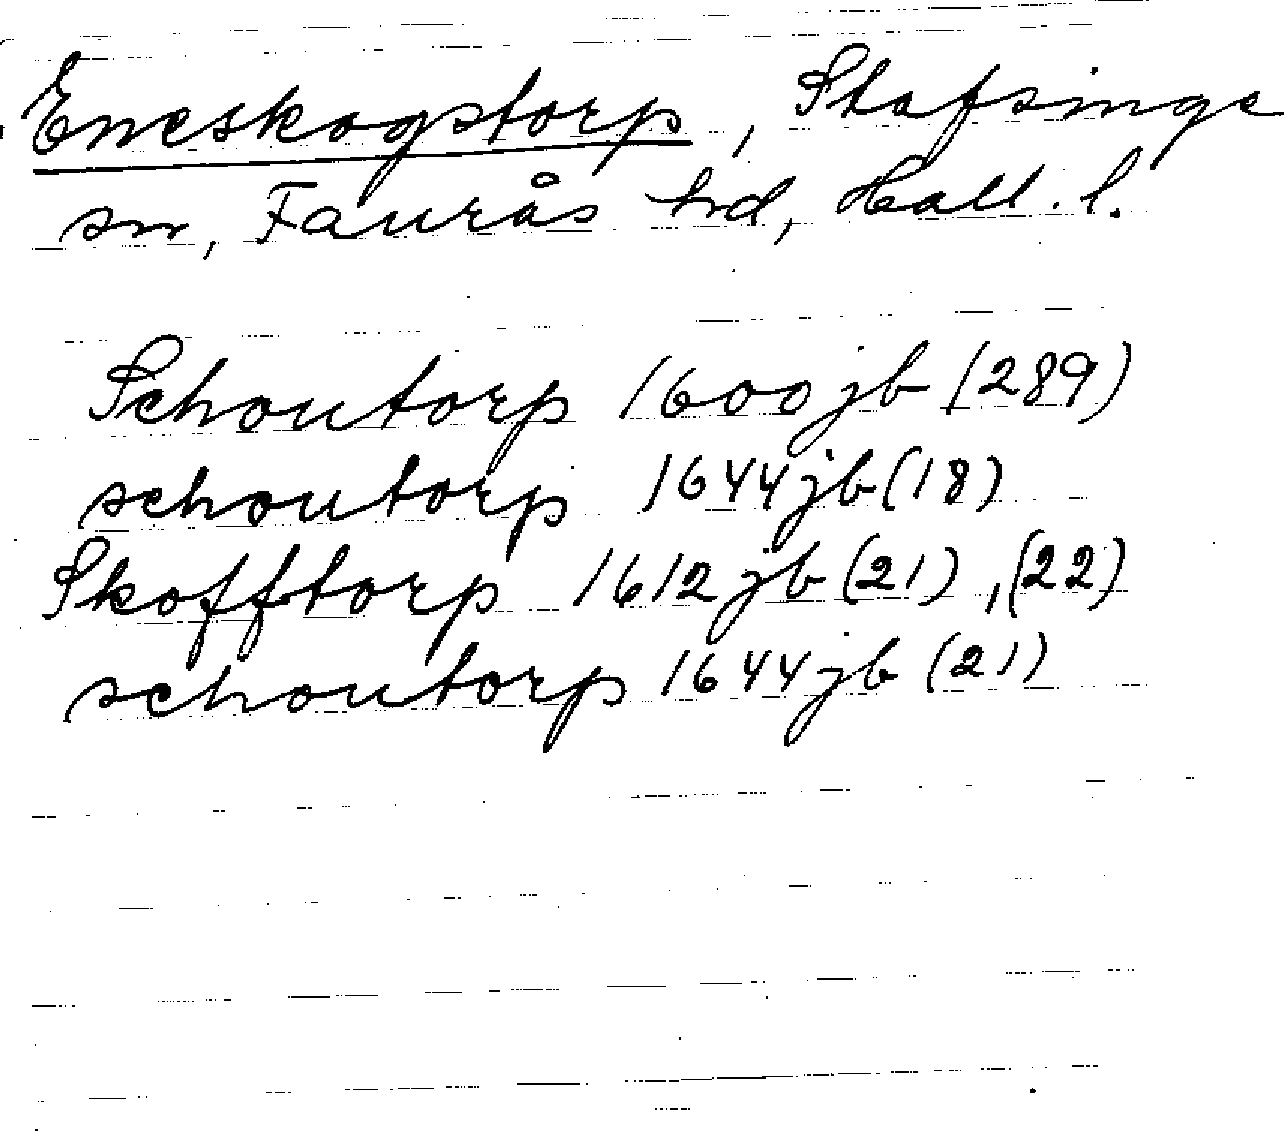 Emeskogstorp, Stafsinge
sn, Faurås hd, Hall. l.
Schoutorp 1600 jb (289)
schoutorp 1644 jb (18)
Skofftorp 1612 jb (21), (22)
schoutorp 1644 jb (21)